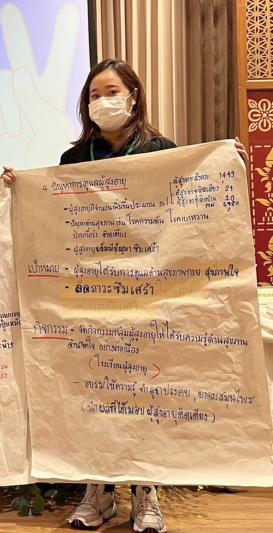 4. ปัญหาการดูแลผู้สูงอายุ
- ผู้สูงอายุมีจำนวนเพิ่มขึ้นประมาณ
ผู้สูงอายุ 1449
ผู้สูงอายุติดเตียง 21
10
รวม 1480
- ปัญหาด้านสุขภาพ เช่น โรคความดัน โรคเบาหวาน
ป่วยเรื้อรัง ติดเตียง
- ผู้สูงอายุ ซึมเศร้า
เป้าหมาย - ผู้สูงอายุได้รับการดูแลด้านสุขภาพกาย สุขภาพใจ
- ลดภาวะซึมเศร้า
กิจกรรม - จัดกิจกรรมกลุ่มผู้สูงอายุให้ได้รับความรู้ด้านสุขภาพ
ด้านจิตใจ อย่างต่อเนื่อง
(โรงเรียนผู้สูงอายุ)
- อบรมให้ความรู้ ทำลูกประคบ, ยาดมสมุนไพร
(นำผลที่ได้มอบผู้สูงอายุติดเตียง)